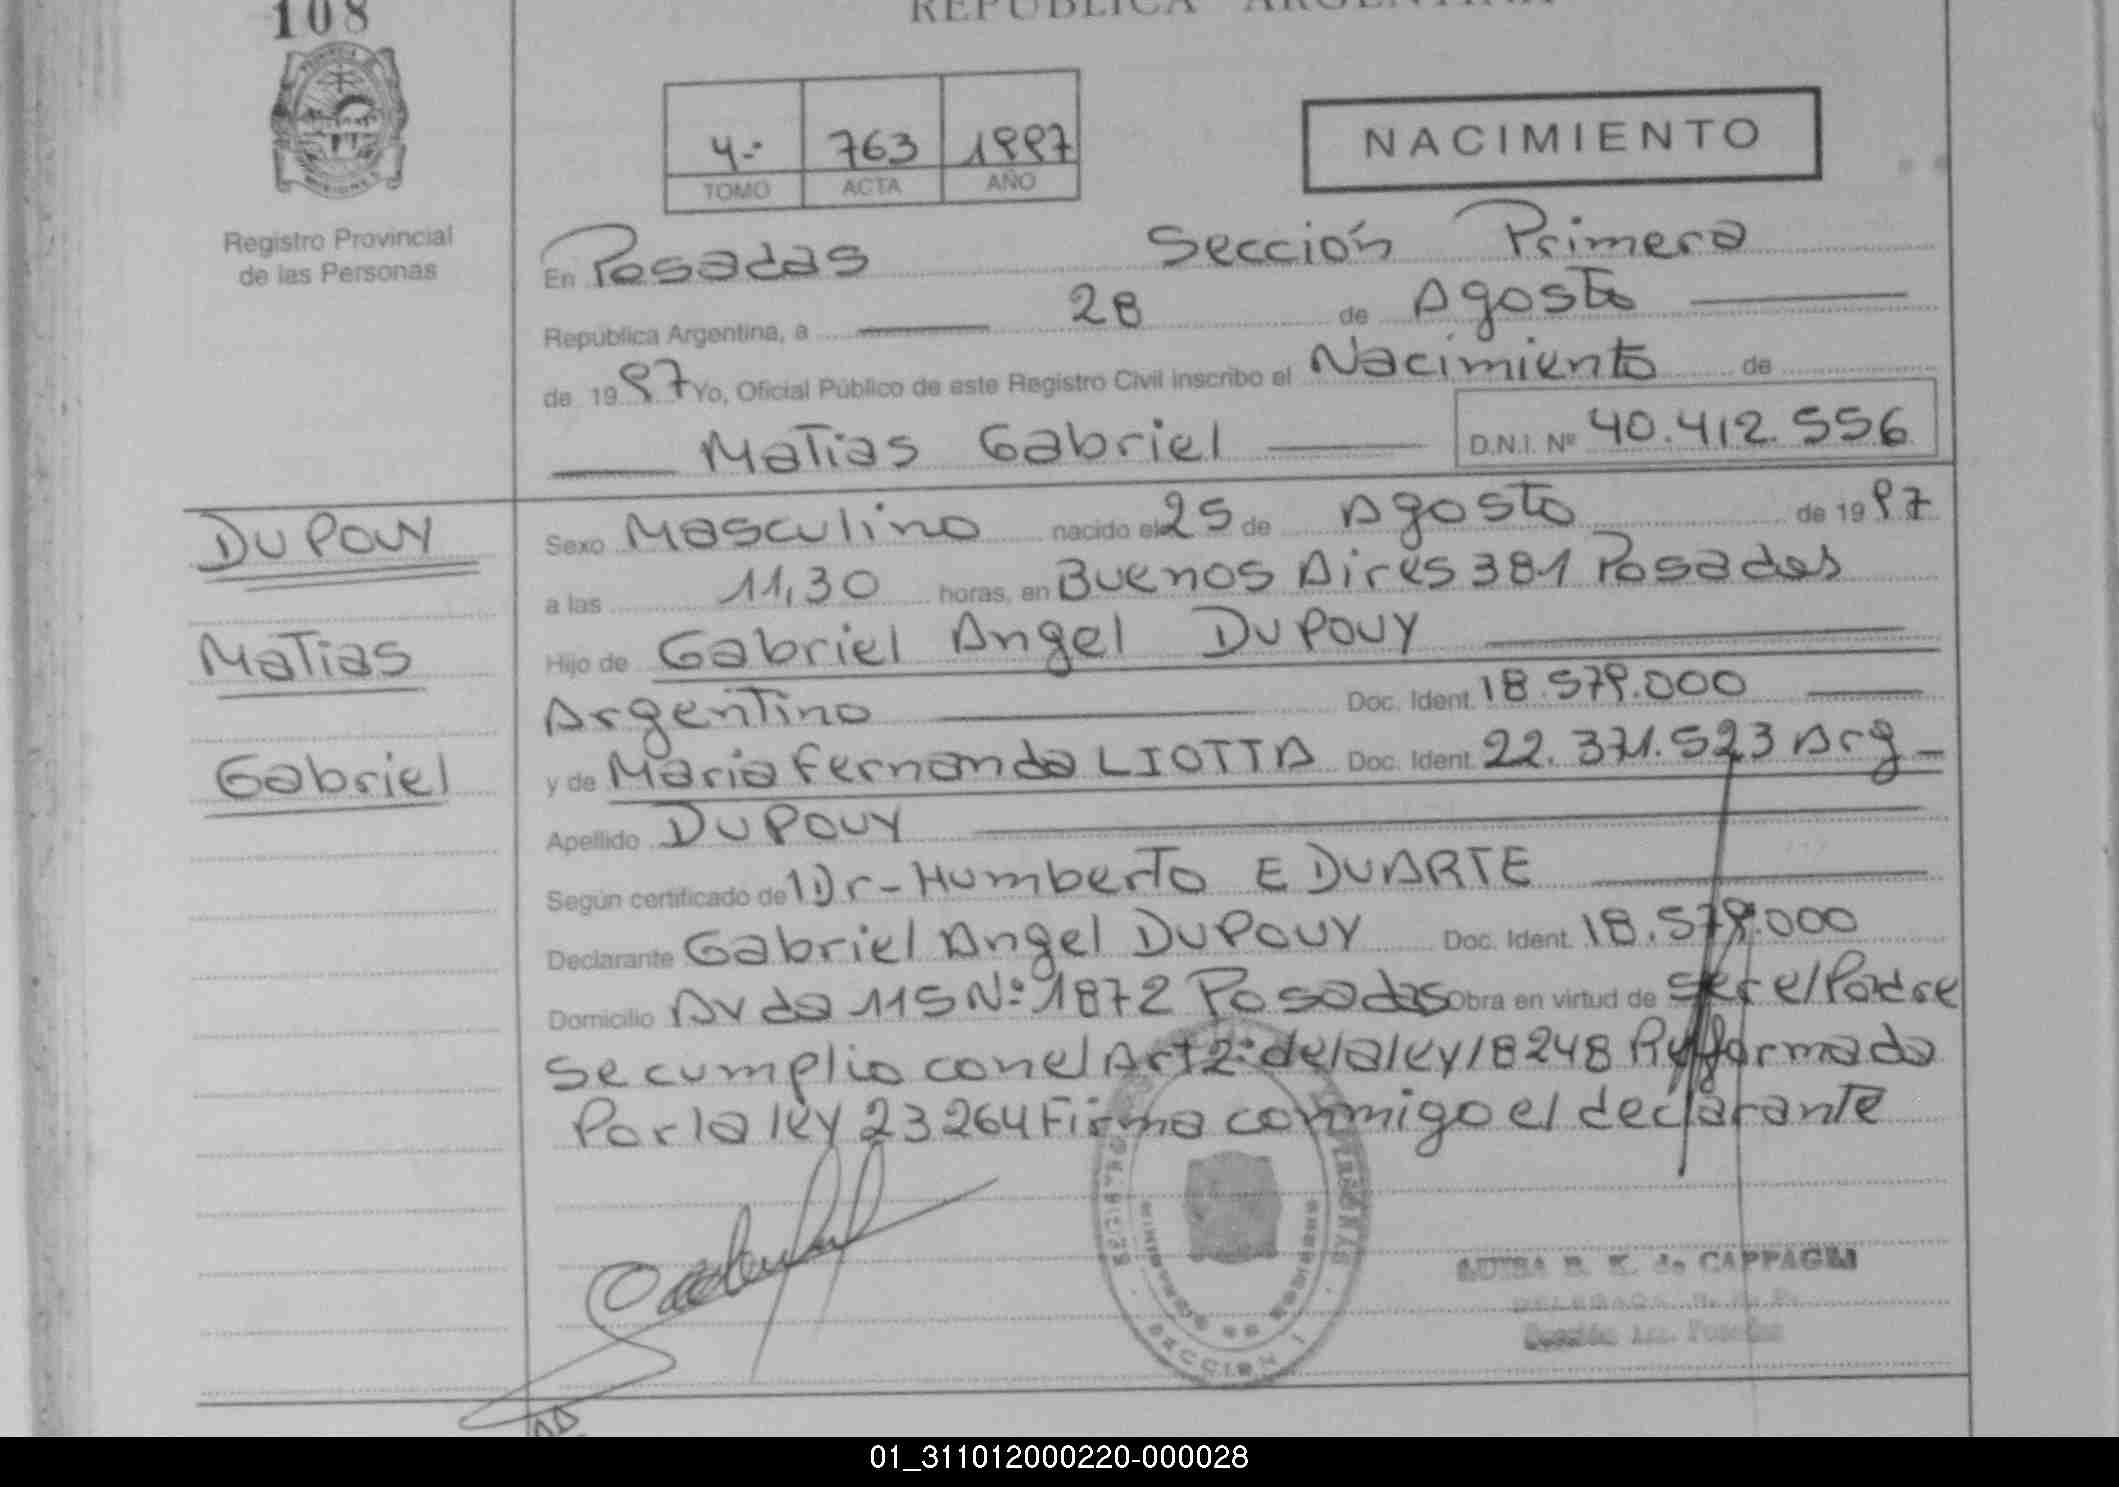 108
REPUBLICA ARGENTINA
4.º 763 1997
TOMO ACTA AÑO
NACIMIENTO
Registro Provincial
de las Personas
En Posadas Sección Primera
República Argentina, a 28 de Agosto
de 1997 Yo, Oficial Público de este Registro Civil inscribo el Nacimiento de
Matias Gabriel D.N.I. Nº 40.412.556
DUPOUY
Matias
Gabriel
Sexo Masculino nacido el 25 de Agosto de 1997
a las 11,30 horas, en Buenos Aires 381 Posadas
Hijo de Gabriel Angel DUPOUY
Argentino Doc. Ident. 18.579.000
y de Maria Fernanda LIOTTA Doc. Ident. 22.371.523 Arg
Apellido DUPOUY
Según certificado de Dr-Humberto E DUARTE
Declarante Gabriel Angel DUPOUY Doc. Ident. 18.579.000
Domicilio Avda 115 Nº 1872 Posadas Obra en virtud de ser el Padre
se cumplio con el Art 2º de la ley 18248 Reformada
Por la ley 23264 Firma conmigo el declarante
LUISA R. K. de CAPPAGLI
SECCION 1
01_311012000220-000028